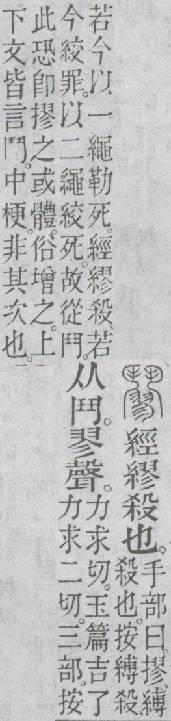 經繆殺也。手部曰。摎縛
殺也。按縛殺
若今以一繩勒死。經繆殺。若
今絞罪。以二繩絞死。故從鬥。
此恐卽摎之或體。俗增之。上
下文皆言鬥。中梗。非其次也。
从鬥。翏聲。力求切。玉篇吉了
力求二切。三部。按